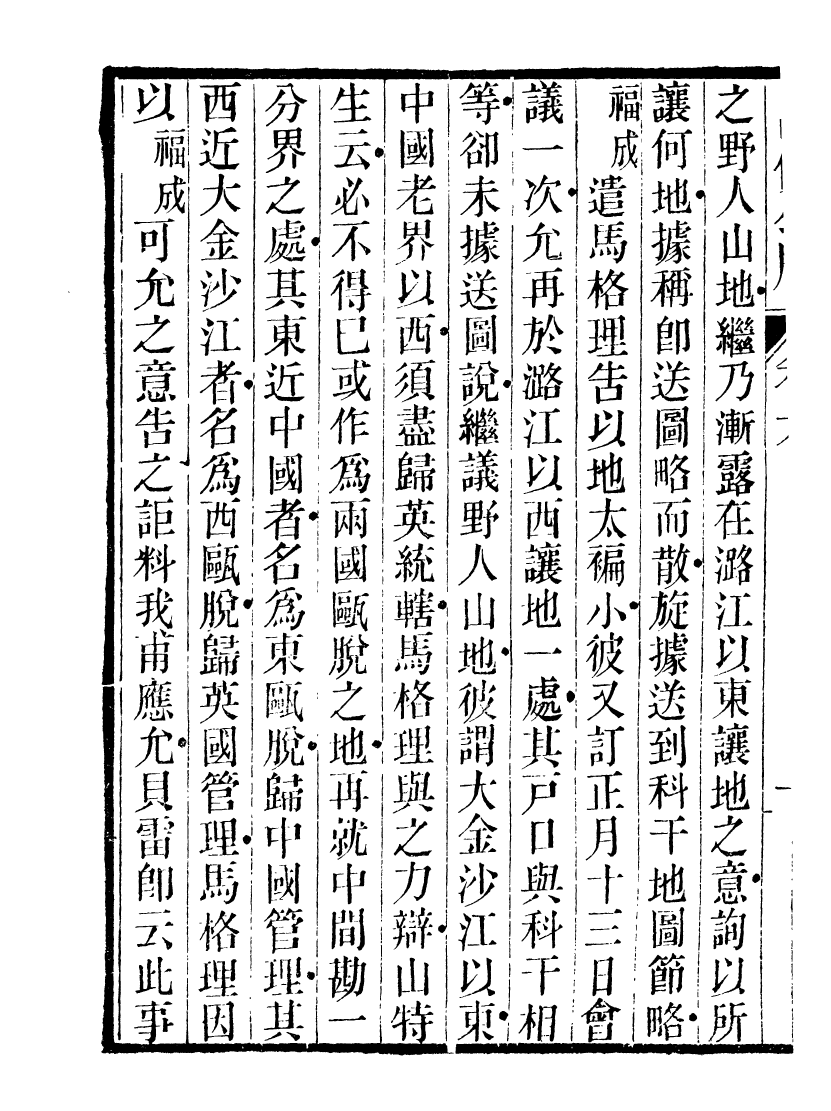 之野人山地繼乃漸露在潞江以東讓地之意詢以所
讓何地據稱卽送圖略而散旋據送到科干地圖節略
福成遣馬格理告以地太褊小彼又訂正月十三日會
議一次允再於潞江以西讓地一處其戸口與科干相
等卻未據送圖說繼議野人山地彼謂大金沙江以東
中國老界以西須盡歸英統轄馬格理與之力辯山特
生云必不得已或作爲兩國甌脫之地再就中間勘一
分界之處其東近中國者名爲東甌脫歸中國管理其
西近大金沙江者名爲西甌脫歸英國管理馬格理因
以福成可允之意告之詎料我甫應允貝雷卽云此事